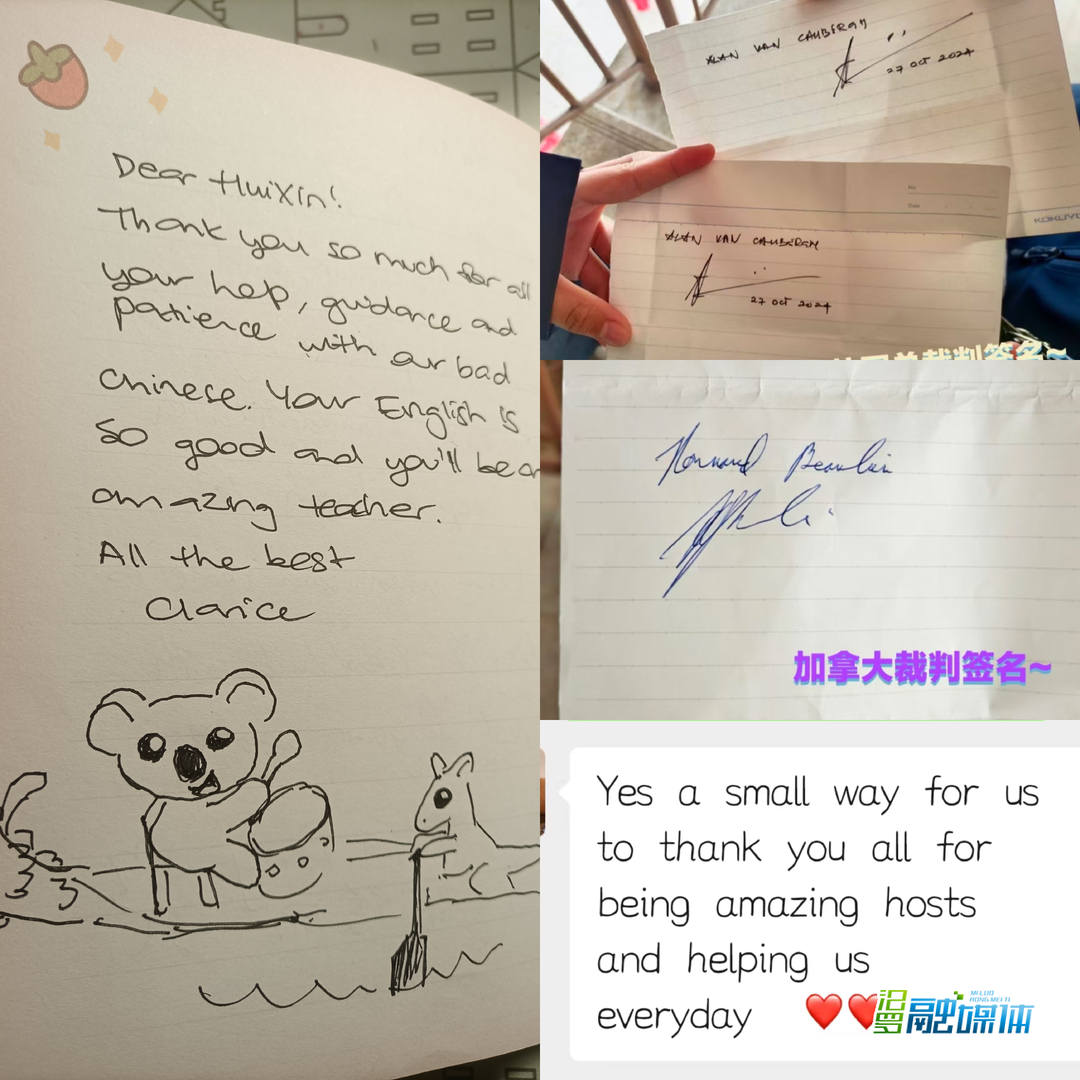 Dear HuiXin!
Thank you so much for all
your help, guidance and
patience with our bad
Chinese. Your English is
so good and you'll be an
amazing teacher.
All the best
Clarice
ALAN VAN CAUBERGH
27 OCT 2024
No.
Date
KOKUYO
ALAN VAN CAUBERGH
27 OCT 2024
裁判签名~
加拿大裁判签名~
Yes a small way for us
to thank you all for
being amazing hosts
and helping us
everyday ❤️❤️
汨罗融媒体
MI LUO
RONG MEI TI